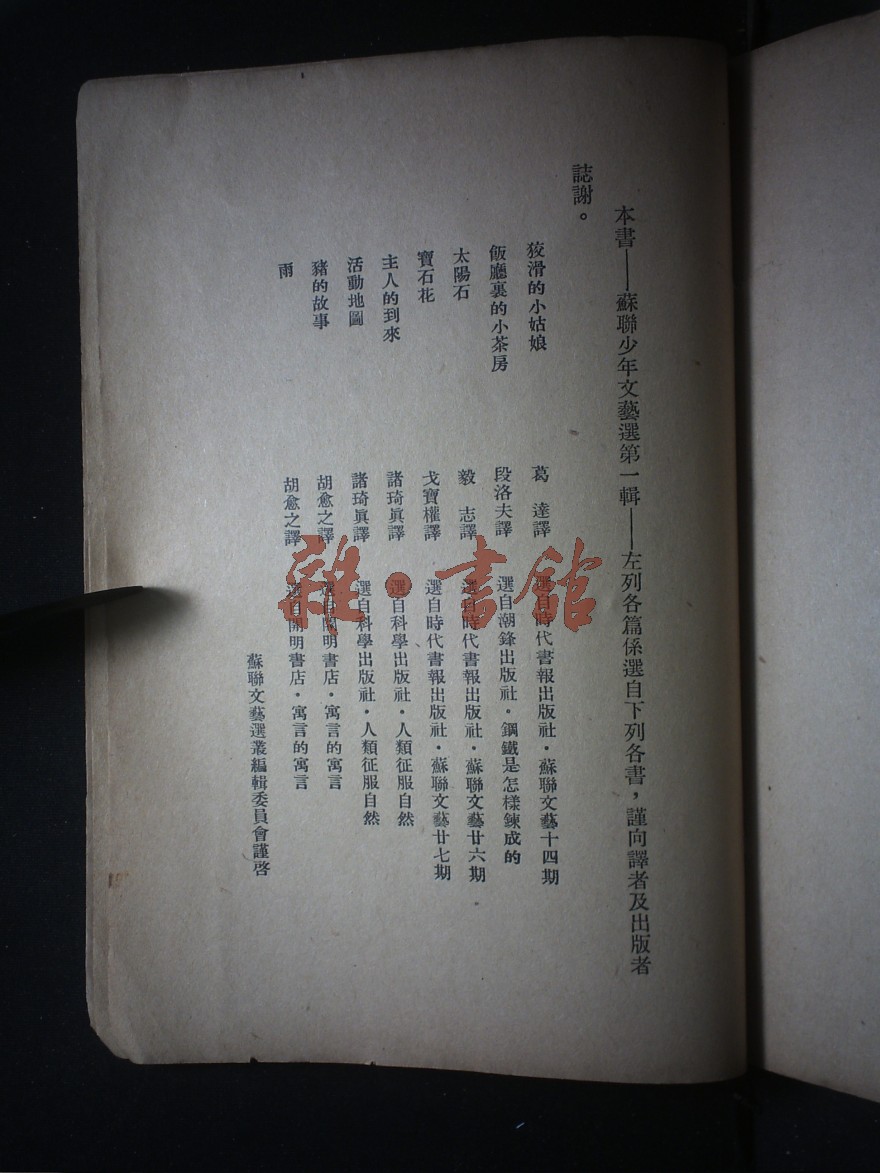 本書——蘇聯少年文藝選第一輯——左列各篇係選自下列各書，謹向譯者及出版者
誌謝。
狡滑的小姑娘 葛　達譯 選自時代書報出版社・蘇聯文藝十四期
飯廳裏的小茶房 段洛夫譯 選自潮鋒出版社。鋼鐵是怎樣鍊成的
太陽石 毅　志譯 選自時代書報出版社・蘇聯文藝廿六期
寶石花 戈寶權譯 選自時代書報出版社・蘇聯文藝廿七期
主人的到來 諸琦眞譯 選自科學出版社・人類征服自然
活動地圖 諸琦眞譯 選自科學出版社・人類征服自然
豬的故事 胡愈之譯 選自開明書店・寓言的寓言
雨 胡愈之譯 選自開明書店・寓言的寓言
蘇聯文藝選叢編輯委員會謹啓
雜・書館